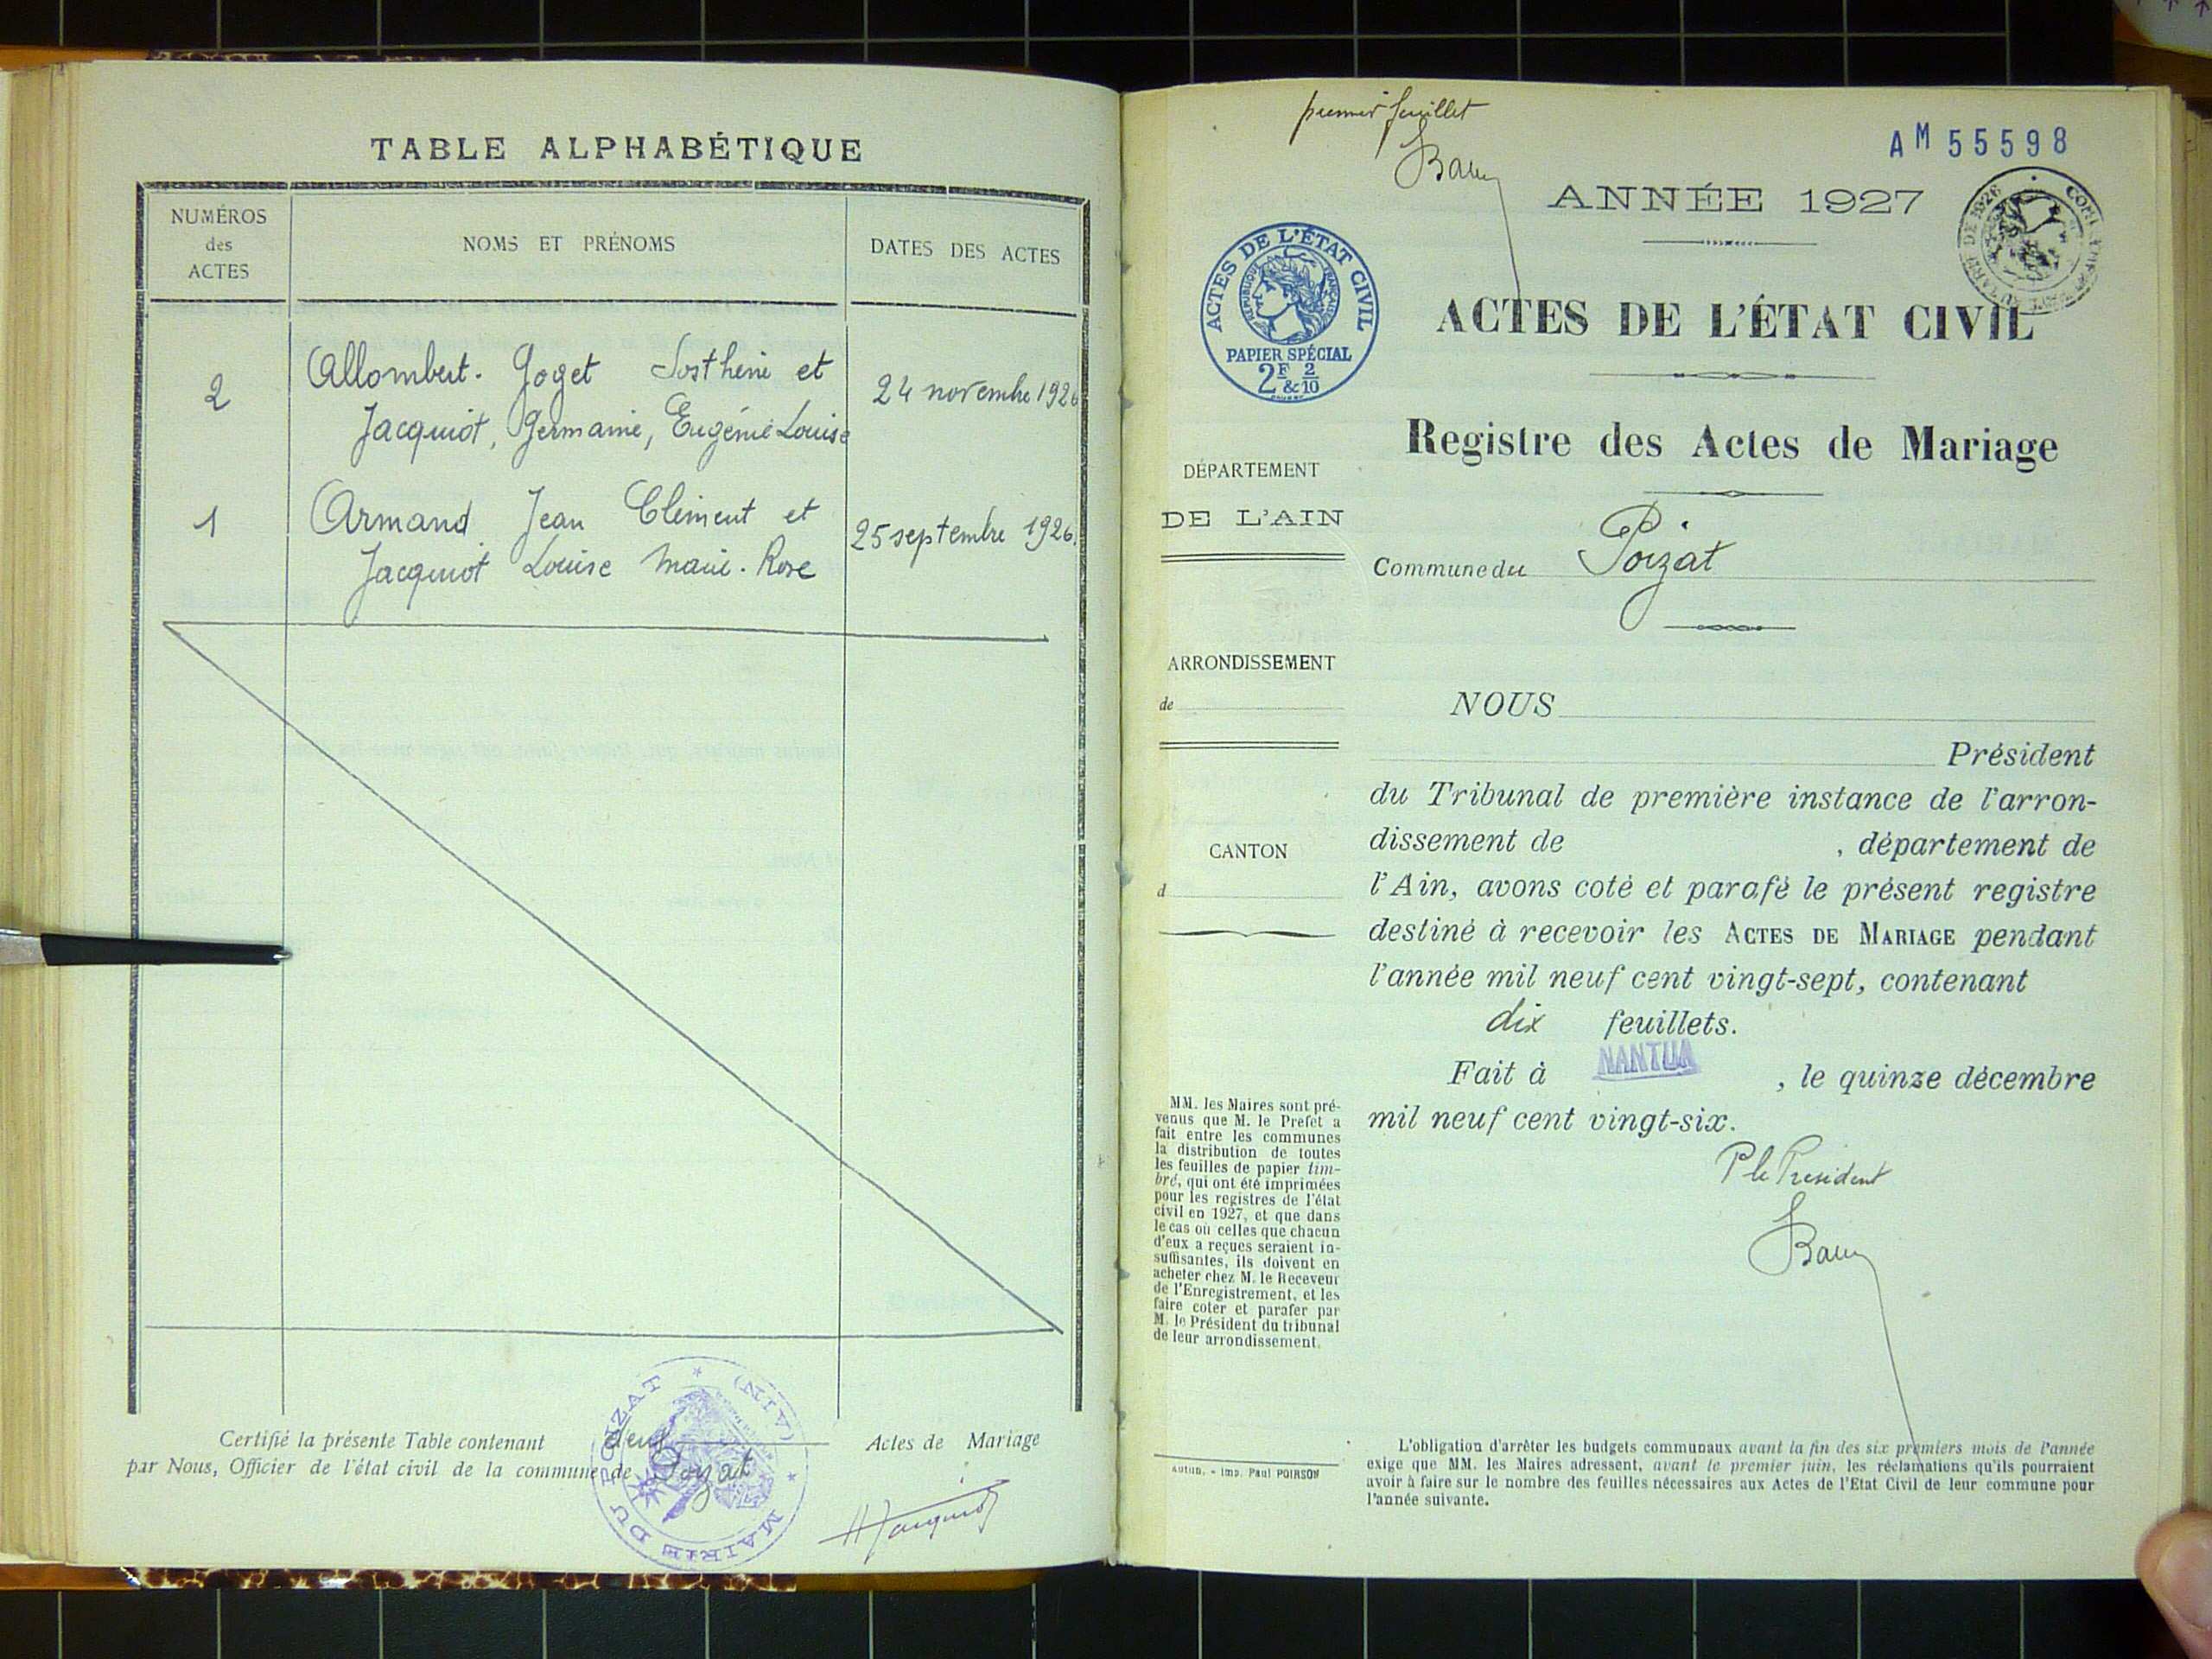 TABLE ALPHABÉTIQUE
NUMÉROS
des
ACTES
NOMS ET PRÉNOMS
DATES DES ACTES
2
Allombert. Goget Sosthène et
Jacquiot, Germaine, Eugénie Louise
24 novembre 1926
1
Armand Jean Clément et
Jacquiot Louise Marie. Rose
25 septembre 1926.
Certifié la présente Table contenant deux Actes de Mariage
par Nous, Officier de l'état civil de la commune de Poizat
MAIRIE DU POIZAT * (AIN) *
HJacquiot
premier feuillet
AM 55598
ANNÉE 1927
ACTES DE L'ÉTAT CIVIL
RÉPUBLIQUE FRANÇAISE
PAPIER SPÉCIAL
2F & 2/10
DE 1926
ACTES DE L'ÉTAT CIVIL
Registre des Actes de Mariage
DÉPARTEMENT
DE L'AIN
Commune du Poizat
ARRONDISSEMENT
de
CANTON
d
NOUS
Président
du Tribunal de première instance de l'arron-
dissement de , département de
l'Ain, avons coté et parafé le présent registre
destiné à recevoir les ACTES DE MARIAGE pendant
l'année mil neuf cent vingt-sept, contenant
dix feuillets.
Fait à NANTUA , le quinze décembre
mil neuf cent vingt-six.
P le Président
MM. les Maires sont pré-
venus que M. le Préfet a
fait entre les communes
la distribution de toutes
les feuilles de papier tim-
bré, qui ont été imprimées
pour les registres de l'état
civil en 1927, et que dans
le cas où celles que chacun
d'eux a reçues seraient in-
suffisantes, ils doivent en
acheter chez M. le Receveur
de l'Enregistrement, et les
faire coter et parafer par
M. le Président du tribunal
de leur arrondissement.
Autun. - Imp. Paul POIRSON
L'obligation d'arrêter les budgets communaux avant la fin des six premiers mois de l'année
exige que MM. les Maires adressent, avant le premier juin, les réclamations qu'ils pourraient
avoir à faire sur le nombre des feuilles nécessaires aux Actes de l'Etat Civil de leur commune pour
l'année suivante.